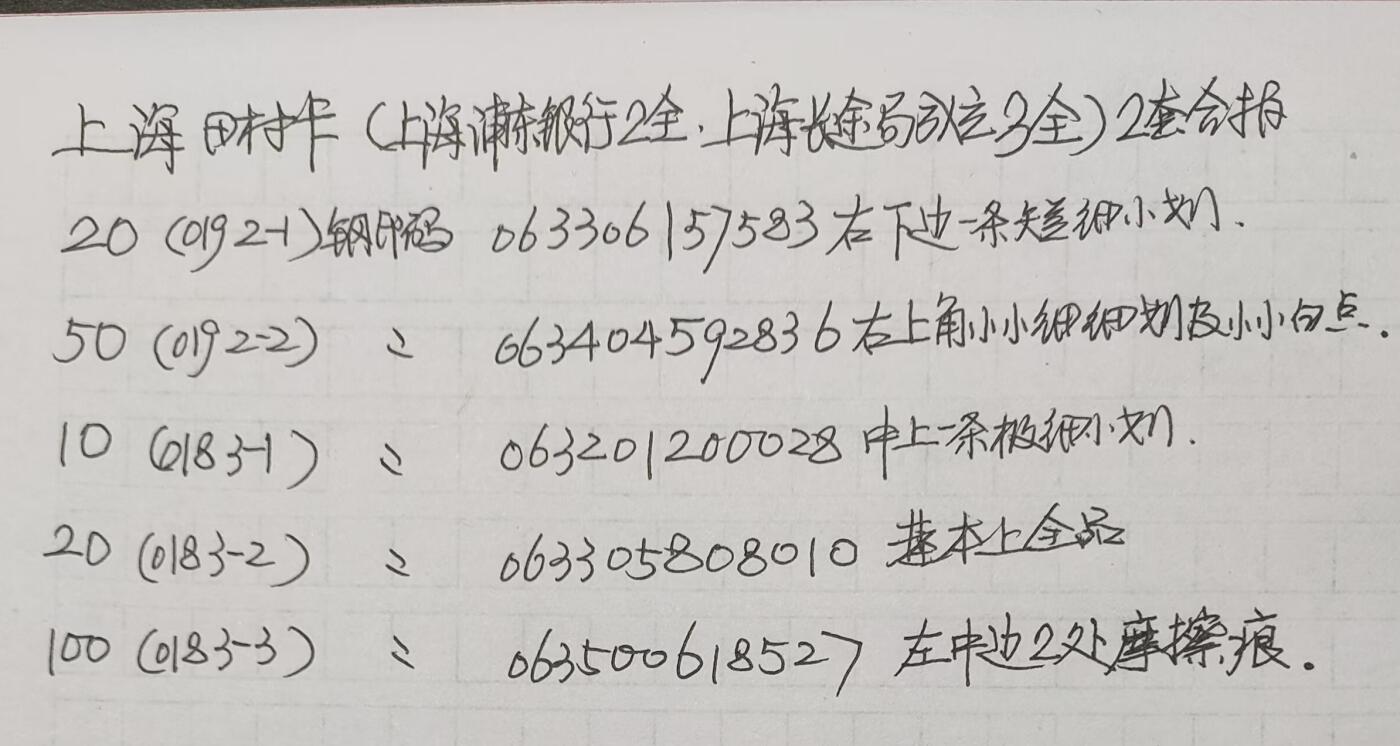 上海田村卡(上海浦东银行2全.上海长途局成立3全)2套合拍
20 (0192-1)钢印码 063306157583 右下边一条短细小划.
50 (0192-2) 〃 063404592836 右上角小小细细划及小小白点.
10 (0183-1) 〃 063201200028 中上一条极细小划.
20 (0183-2) 〃 063305808010 基本上全品
100 (0183-3) 〃 063500618527 左中边2处摩擦痕.